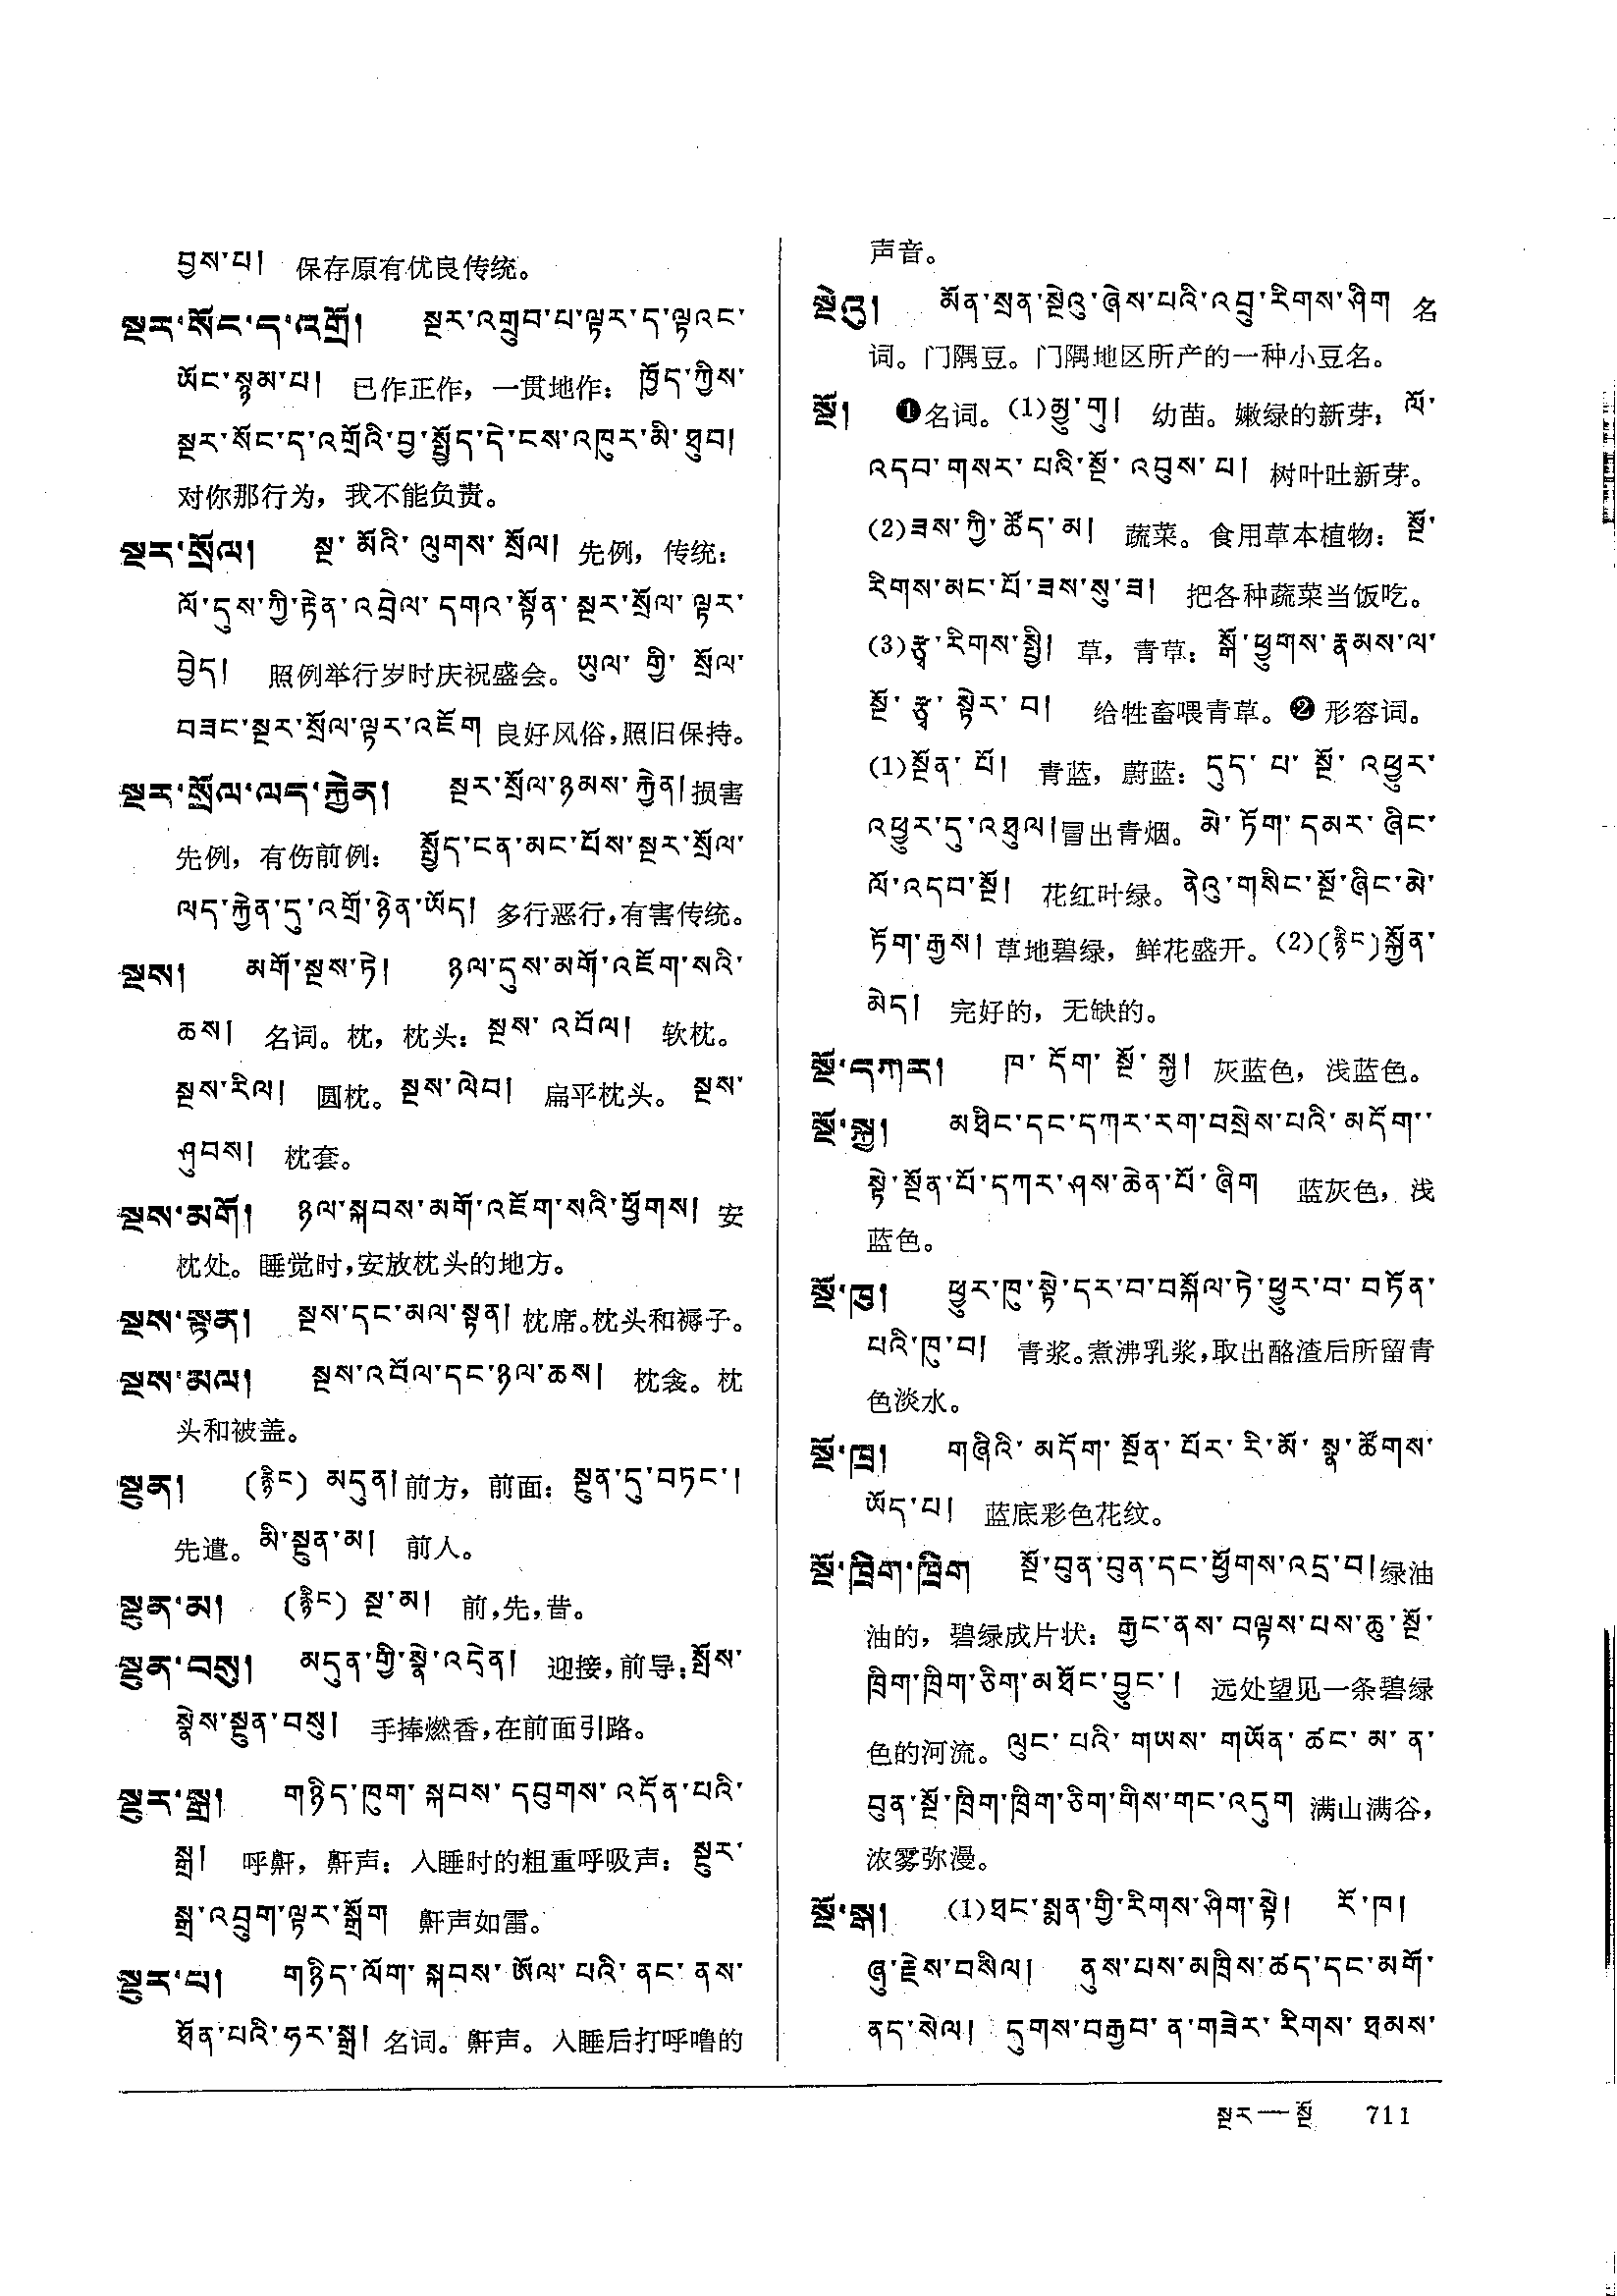 བྱས་པ། 保存原有优良传统。
སྔར་སོང་ད་འགྲོ། སྔར་འགྲུབ་པ་ལྟར་ད་ལྟའང་
ཡོང་སྙམ་པ། 已作正作，一贯地作：ཁྱོད་ཀྱིས་
སྔར་སོང་ད་འགྲོའི་བྱ་སྤྱོད་དེ་ངས་འཁུར་མི་ཐུབ།
对你那行为，我不能负责。
སྔར་སྲོལ། སྔ་མོའི་ལུགས་སྲོལ། 先例，传统：
ལོ་དུས་ཀྱི་རྟེན་འབྲེལ་དགའ་སྟོན་སྔར་སྲོལ་ལྟར་
བྱེད། 照例举行岁时庆祝盛会。ཡུལ་གྱི་སྲོལ་
བཟང་སྔར་སྲོལ་ལྟར་འཇོག 良好风俗,照旧保持。
སྔར་སྲོལ་ལད་རྐྱེན། སྔར་སྲོལ་ཉམས་རྐྱེན། 损害
先例，有伤前例：སྤྱོད་ངན་མང་པོས་སྔར་སྲོལ་
ལད་རྐྱེན་དུ་འགྲོ་ཉེན་ཡོད། 多行恶行,有害传统。
སྔས། མགོ་སྔས་ཏེ། ཉལ་དུས་མགོ་འཇོག་སའི་
ཆས། 名词。枕，枕头：སྔས་འབོལ། 软枕。
སྔས་རིལ། 圆枕。སྔས་ལེབ། 扁平枕头。སྔས་
ཤུབས། 枕套。
སྔས་མགོ། ཉལ་སྐབས་མགོ་འཇོག་སའི་ཕྱོགས། 安
枕处。睡觉时,安放枕头的地方。
སྔས་སྟན། སྔས་དང་མལ་སྟན། 枕席。枕头和褥子。
སྔས་མལ། སྔས་འབོལ་དང་ཉལ་ཆས། 枕衾。枕
头和被盖。
སྔུན། (རྙིང) མདུན། 前方，前面：སྔུན་དུ་བཏང་།
先遣。མི་སྔུན་མ། 前人。
སྔུན་མ། (རྙིང) སྔ་མ། 前,先,昔。
སྔུན་བསུ། མདུན་གྱི་སྣེ་འདྲེན། 迎接,前导：སྤོས་
སྣེས་སྔུན་བསུ། 手捧燃香,在前面引路。
སྔུར་སྒྲ། གཉིད་ཁུག་སྐབས་དབུགས་འདོན་པའི་
སྒྲ། 呼鼾，鼾声：入睡时的粗重呼吸声：སྔུར་
སྒྲ་འབྲུག་ལྟར་སྒྲོག 鼾声如雷。
སྔུར་པ། གཉིད་ལོག་སྐབས་ཨོལ་པའི་ནང་ནས་
ཐོན་པའི་ཧར་སྒྲ། 名词。鼾声。入睡后打呼噜的
声音。
སྔེའུ། མོན་སྲན་སྔེའུ་ཞེས་པའི་འབྲུ་རིགས་ཤིག 名
词。门隅豆。门隅地区所产的一种小豆名。
སྔོ། ❶名词。(1)མྱུ་གུ། 幼苗。嫩绿的新芽：ལོ་
འདབ་གསར་པའི་སྔོ་འབུས་པ། 树叶吐新芽。
(2)ཟས་ཀྱི་ཚོད་མ། 蔬菜。食用草本植物：སྔོ་
རིགས་མང་པོ་ཟས་སུ་ཟ། 把各种蔬菜当饭吃。
(3)རྩྭ་རིགས་སྤྱི། 草，青草：སྒོ་ཕྱུགས་རྣམས་ལ་
སྔོ་རྩྭ་སྟེར་བ། 给牲畜喂青草。❷形容词。
(1)སྔོན་པོ། 青蓝，蔚蓝：དུད་པ་སྔོ་འཕྱུར་
འཕྱུར་དུ་འཐུལ། 冒出青烟。མེ་ཏོག་དམར་ཞིང་
ལོ་འདབ་སྔོ། 花红叶绿。ནེའུ་གསིང་སྔོ་ཞིང་མེ་
ཏོག་རྒྱས། 草地碧绿，鲜花盛开。(2)(རྙིང)སྐྱོན་
མེད། 完好的，无缺的。
སྔོ་དཀར། ཁ་དོག་སྔོ་སྐྱ། 灰蓝色，浅蓝色。
སྔོ་སྐྱ། མཐིང་དང་དཀར་རག་བསྲེས་པའི་མདོག་
སྟེ་སྔོན་པོ་དཀར་ཤས་ཆེན་པོ་ཞིག 蓝灰色，浅
蓝色。
སྔོ་ཁུ། ཕྱུར་ཁུ་སྟེ་དར་བ་བསྐོལ་ཏེ་ཕྱུར་བ་བཏོན་
པའི་ཁུ་བ། 青浆。煮沸乳浆,取出酪渣后所留青
色淡水。
སྔོ་ཁྲ། གཞིའི་མདོག་སྔོན་པོར་རི་མོ་སྣ་ཚོགས་
ཡོད་པ། 蓝底彩色花纹。
སྔོ་ཁྲིག་ཁྲིག སྔོ་བུན་བུན་དང་ཕྱོགས་འདྲ་བ། 绿油
油的，碧绿成片状：རྒྱང་ནས་བལྟས་པས་ཆུ་སྔོ་
ཁྲིག་ཁྲིག་ཅིག་མཐོང་བྱུང་། 远处望见一条碧绿
色的河流。ལུང་པའི་གཡས་གཡོན་ཚང་མ་ན་
བུན་སྔོ་ཁྲིག་ཁྲིག་ཅིག་གིས་གང་འདུག 满山满谷，
浓雾弥漫。
སྔོ་སྒ། (1)ཐང་སྨན་གྱི་རིགས་ཤིག་སྟེ། རོ་ཁ།
ཞུ་རྗེས་བསིལ། ནུས་པས་མཁྲིས་ཚད་དང་མགོ་
ནད་སེལ། དུགས་བརྒྱབ་ན་གཟེར་རིགས་ཐམས་
སྔར—སྔོ 711